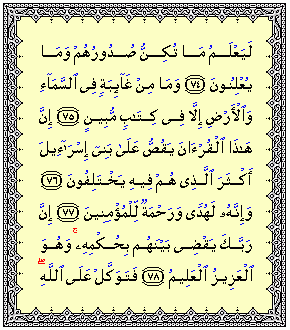 لَيَعْلَمُ مَا تُكِنُّ صُدُورُهُمْ وَمَا
يُعْلِنُونَ ﴿٧٤﴾ وَمَا مِنْ غَآئِبَةٍ فِى ٱلسَّمَآءِ
وَٱلْأَرْضِ إِلَّا فِى كِتَٰبٍ مُّبِينٍ ﴿٧٥﴾ إِنَّ
هَٰذَا ٱلْقُرْءَانَ يَقُصُّ عَلَىٰ بَنِىٓ إِسْرَٰٓءِيلَ
أَكْثَرَ ٱلَّذِى هُمْ فِيهِ يَخْتَلِفُونَ ﴿٧٦﴾
وَإِنَّهُۥ لَهُدًى وَرَحْمَةٌ لِّلْمُؤْمِنِينَ ﴿٧٧﴾ إِنَّ
رَبَّكَ يَقْضِى بَيْنَهُم بِحُكْمِهِۦ ۚ وَهُوَ
ٱلْعَزِيزُ ٱلْعَلِيمُ ﴿٧٨﴾ فَتَوَكَّلْ عَلَى ٱللَّهِ ۖ